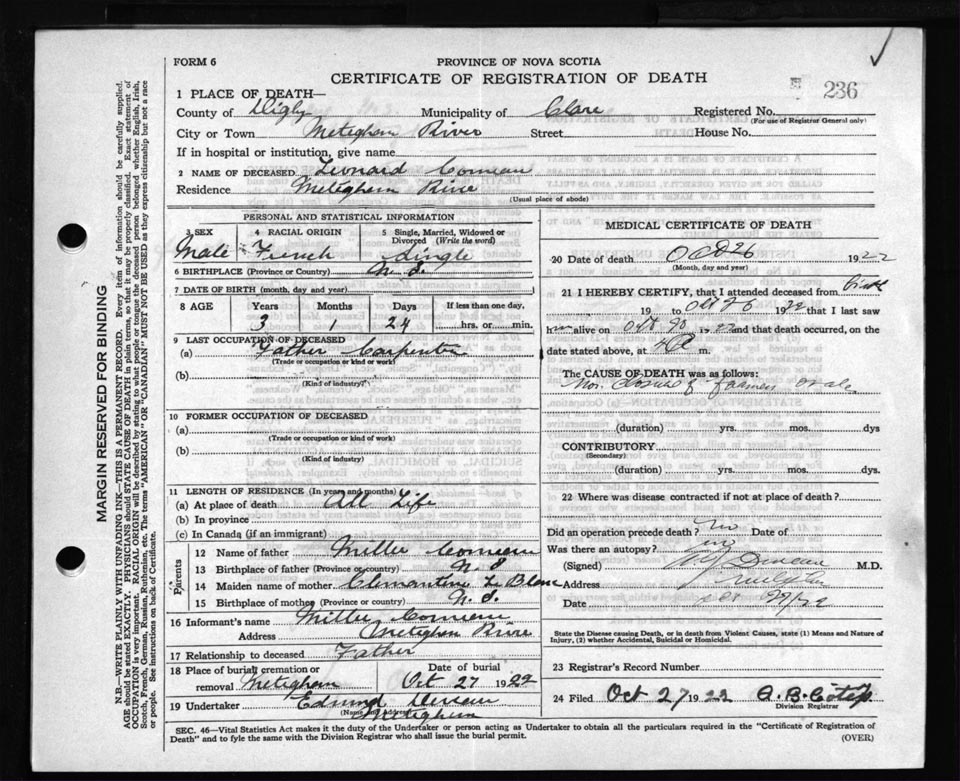 FORM 6
PROVINCE OF NOVA SCOTIA
CERTIFICATE OF REGISTRATION OF DEATH
236
1 PLACE OF DEATH—
County of Digby Municipality of Clare Registered No.
(For use of Registrar General only)
City or Town Meteghan River Street House No.
If in hospital or institution, give name
2 NAME OF DECEASED Leonard Comeau
Residence Meteghan River
(Usual place of abode)
PERSONAL AND STATISTICAL INFORMATION
3 SEX 4 RACIAL ORIGIN 5 Single, Married, Widowed or Divorced (Write the word)
Male French Single
6 BIRTHPLACE (Province or Country) N. S.
7 DATE OF BIRTH (month, day and year)
8 AGE Years Months Days If less than one day,
3 1 24 hrs. or min.
9 LAST OCCUPATION OF DECEASED
(a) Father Carpenter
(Trade or occupation or kind of work)
(b)
(Kind of industry)
10 FORMER OCCUPATION OF DECEASED
(a)
(Trade or occupation or kind of work)
(b)
(Kind of industry)
11 LENGTH OF RESIDENCE (In years and months)
(a) At place of death All Life
(b) In province
(c) In Canada (if an immigrant)
Parents
12 Name of father Comeau
13 Birthplace of father (Province or country) N. S.
14 Maiden name of mother Clemantine LeBlanc
15 Birthplace of mother (Province or country) N. S.
16 Informant's name Comeau
Address Meteghan River
17 Relationship to deceased Father
18 Place of burial, cremation or removal Meteghan Date of burial Oct 27 1922
19 Undertaker Edmund
(Name and address)
Meteghan
MEDICAL CERTIFICATE OF DEATH
20 Date of death Oct 26 1922
(Month, day and year)
21 I HEREBY CERTIFY, that I attended deceased from birth
19 to Oct 26 1922 that I last saw
him alive on Oct 1922 and that death occurred, on the
date stated above, at 4 a m.
The CAUSE OF DEATH was as follows:
Non closure of foramen ovale
(duration) yrs. mos. dys
CONTRIBUTORY
(Secondary)
(duration) yrs. mos. dys.
22 Where was disease contracted if not at place of death?
Did an operation precede death? no Date of
Was there an autopsy? no
(Signed) M.D.
Address
Date Oct 27/22
State the Disease causing Death, or in death from Violent Causes, state (1) Means and Nature of
Injury, (2) whether Accidental, Suicidal or Homicidal.
23 Registrar's Record Number
24 Filed Oct 27 1922 A. B.
Division Registrar
SEC. 46—Vital Statistics Act makes it the duty of the Undertaker or person acting as Undertaker to obtain all the particulars required in the "Certificate of Registration of
Death" and to fyle the same with the Division Registrar who shall issue the burial permit.
(OVER)
MARGIN RESERVED FOR BINDING
N.B.—WRITE PLAINLY WITH UNFADING INK—THIS IS A PERMANENT RECORD. Every item of information should be carefully supplied.
AGE should be stated EXACTLY. PHYSICIANS should STATE CAUSE OF DEATH in plain terms, so that it may be properly classified. Exact statement of
OCCUPATION is very important. RACIAL ORIGIN will be described by stating to what people or tongue the deceased person belonged whether English, Irish,
Scotch, French, German, Russian, Ruthenian, etc. The terms "AMERICAN" or "CANADIAN" MUST NOT BE USED as they express citizenship but not a race
or people. See instructions on back of Certificate.